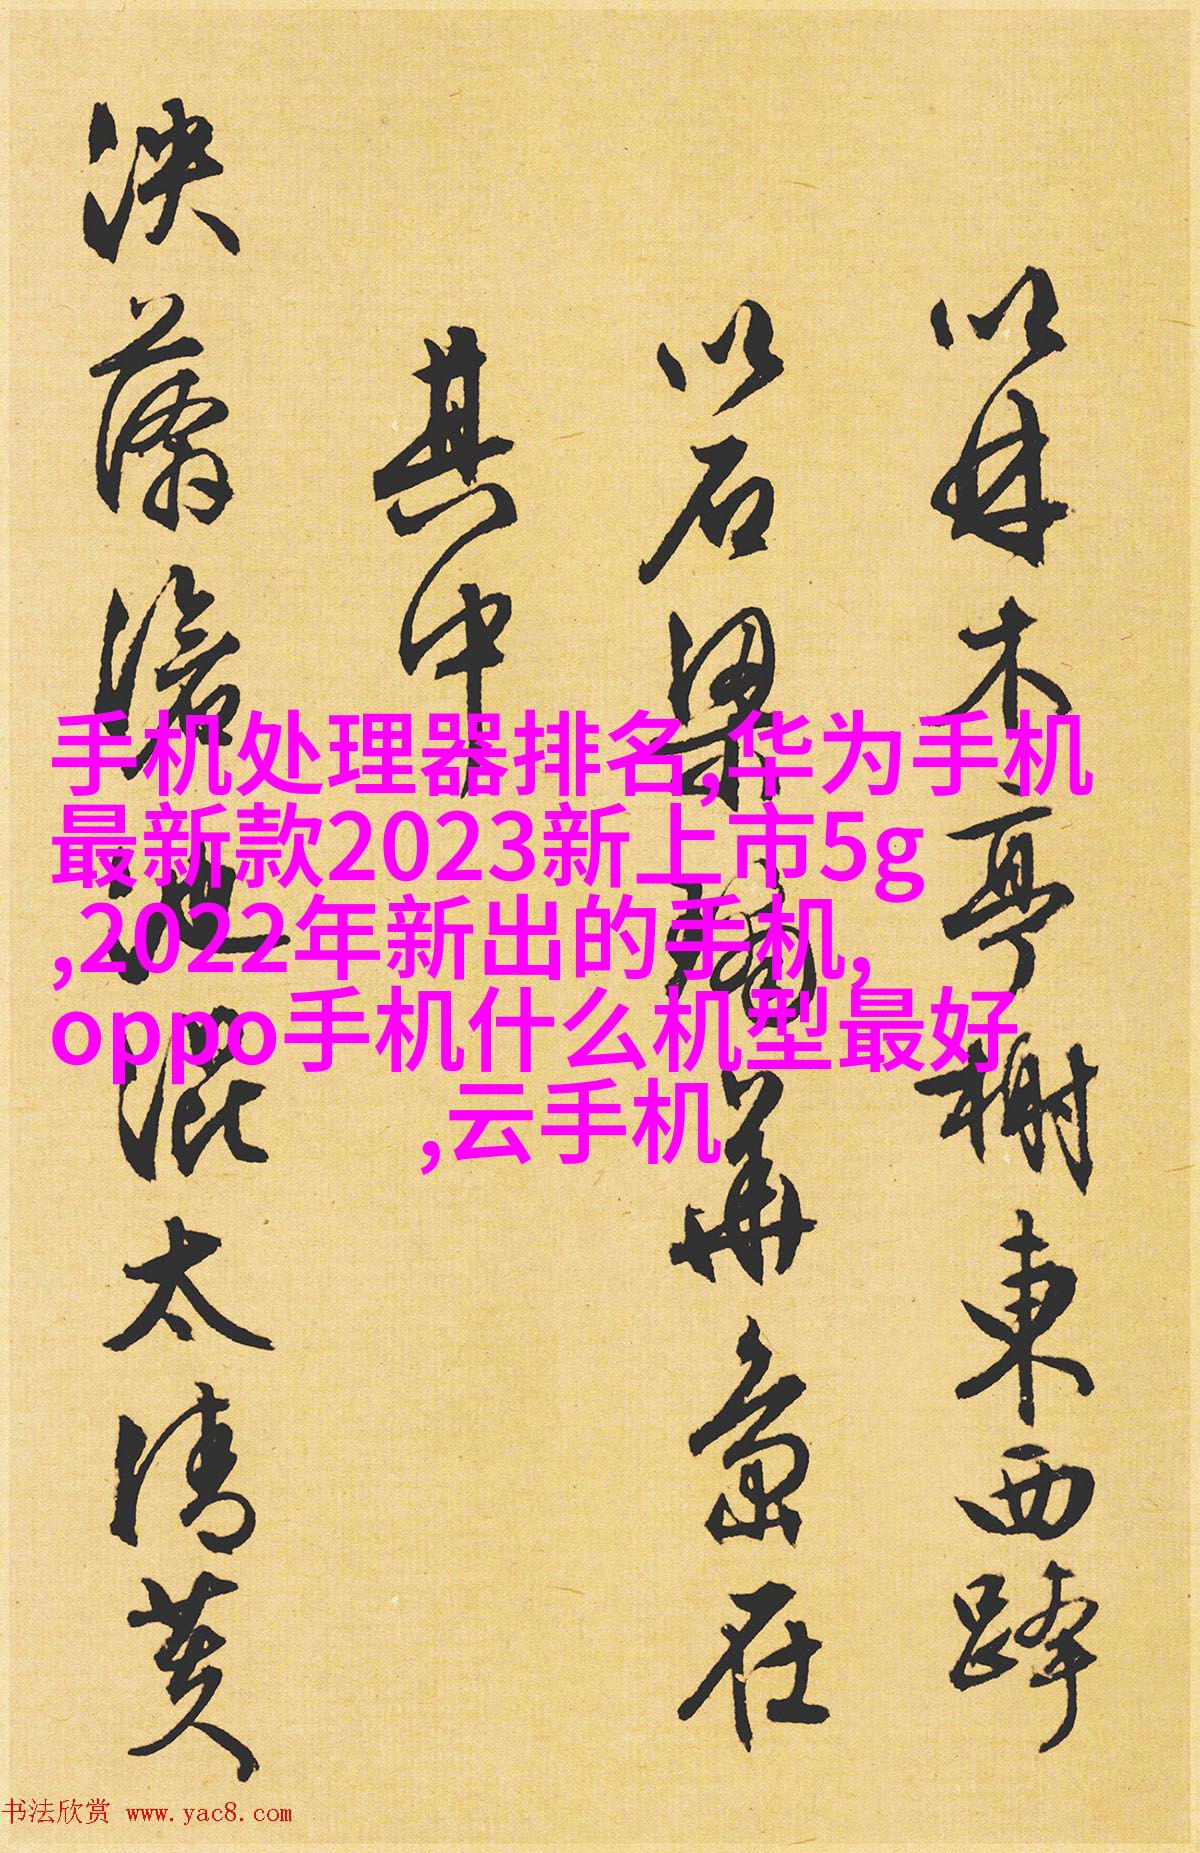 以林木亭榭東西跨
以石梁
華島在
其中
泱
滄池混太清
手机处理器排名,华为手机
最新款2023新上市5g
,2022年新出的手机,
oppo手机什么机型最好
,云手机
书法欣赏 www.yac8.com